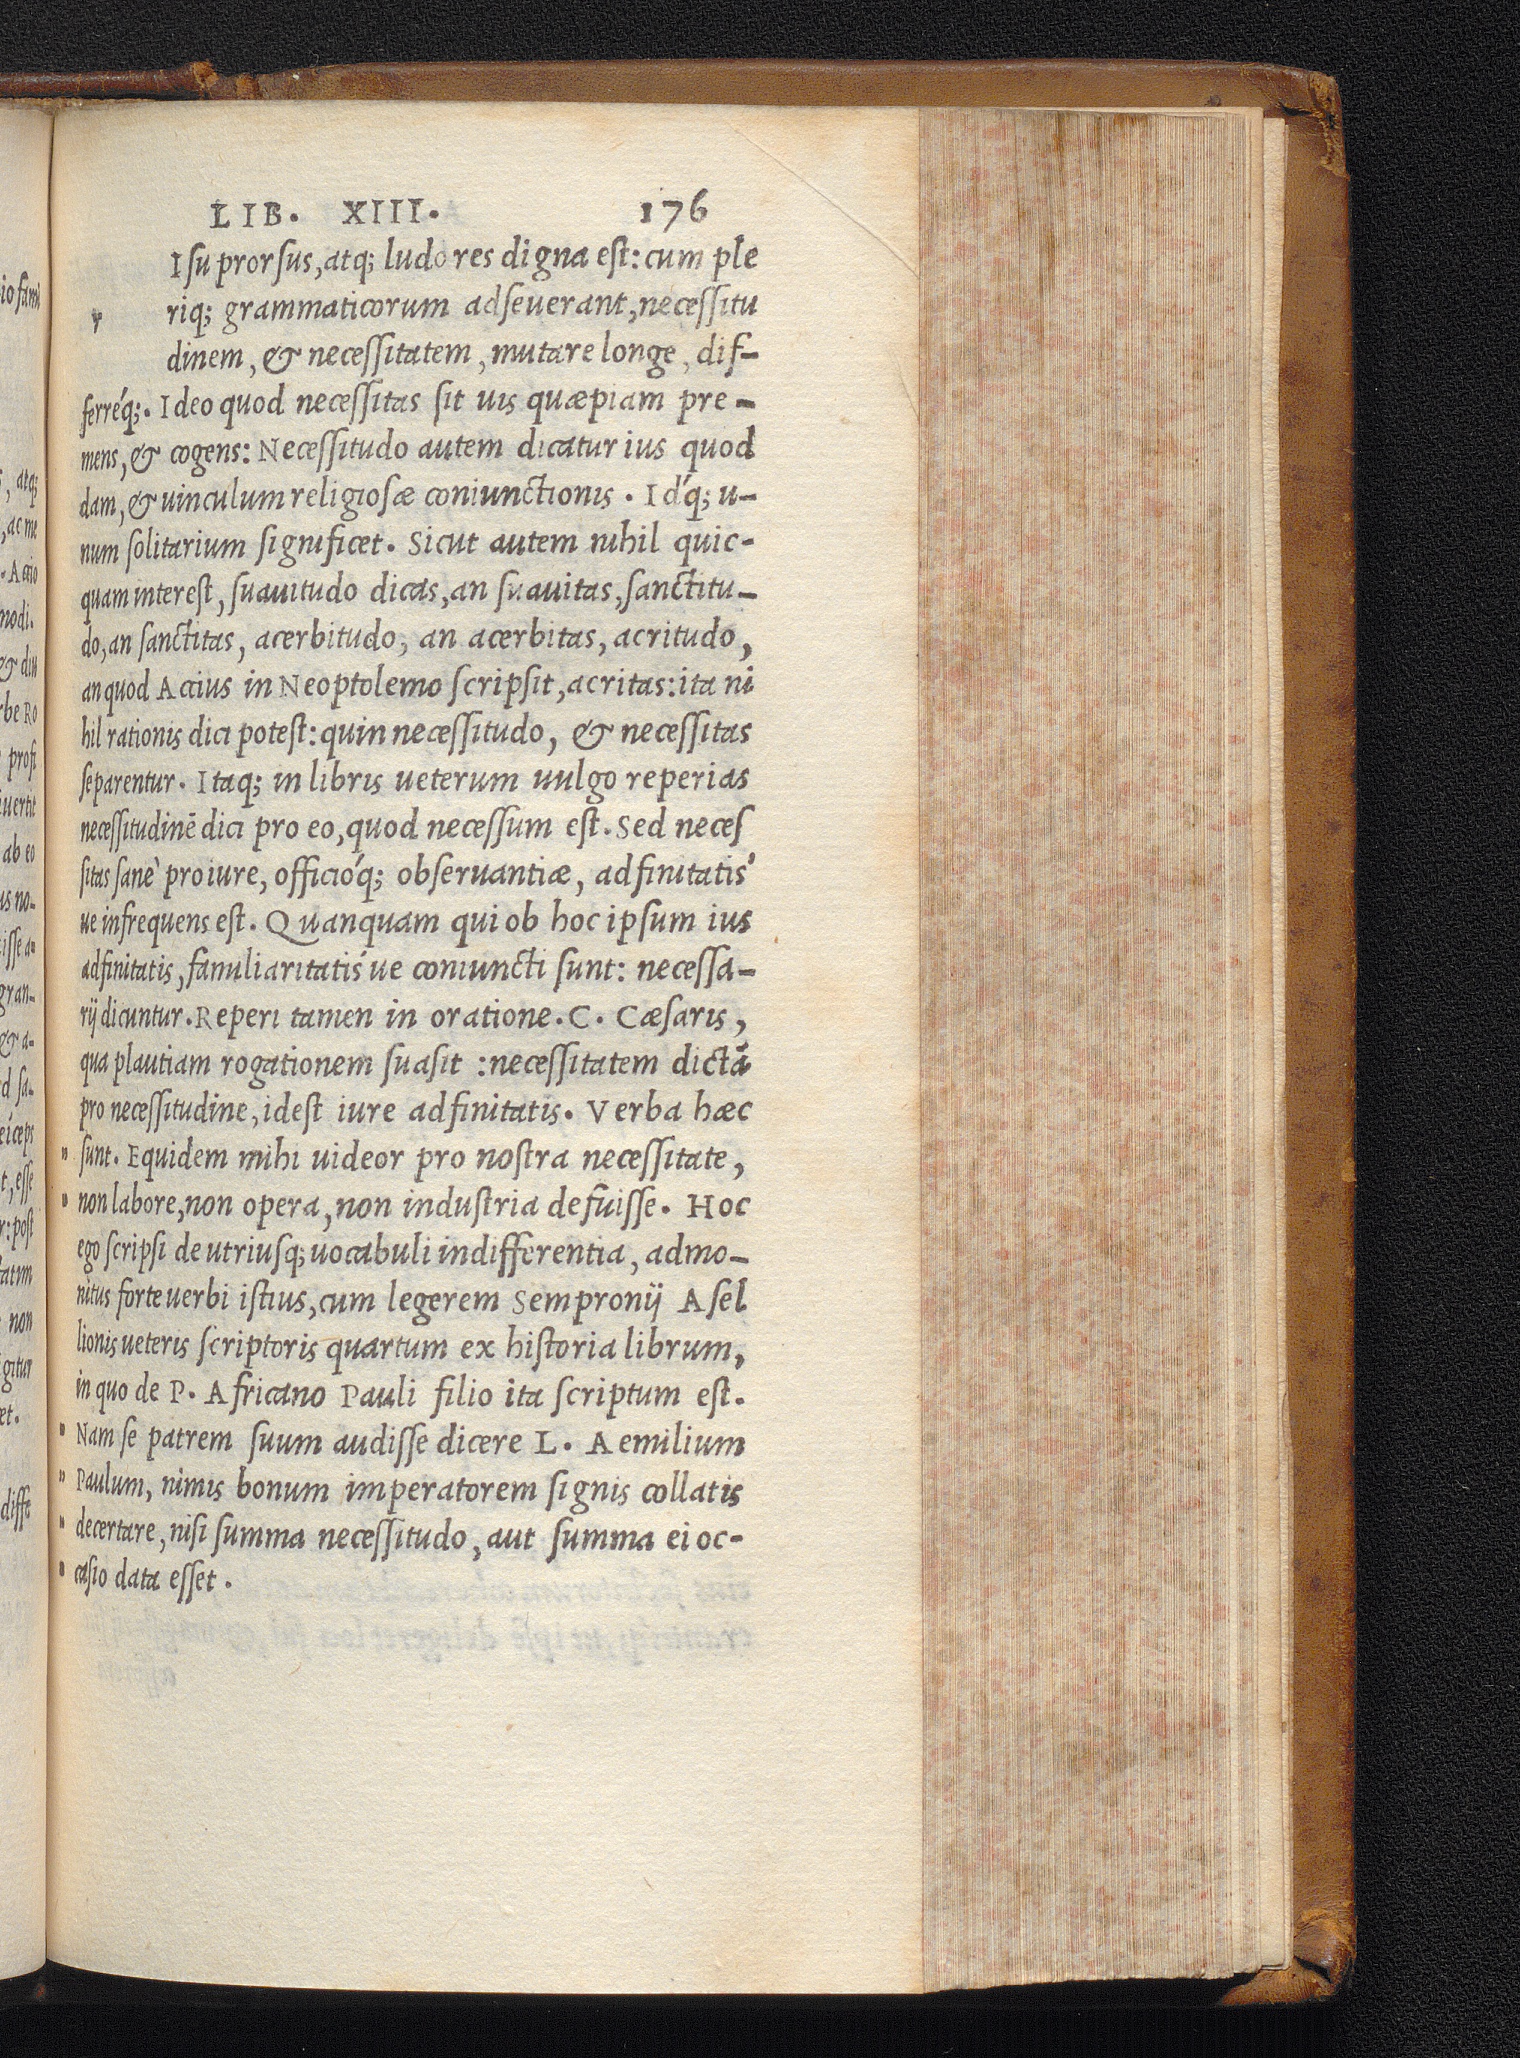 LIB. XIII. 176
r
Iſu prorſus, atq; ludo res digna eſt: cum ple
riq; grammaticorum adſeuerant, neceſſitu
dinem, & neceſſitatem, mutare longe, dif-
ferréq;. Ideo quod neceſſitas ſit uis quæpiam pre-
mens, & cogens: Neceſſitudo autem dicatur ius quod
dam, & uinculum religioſæ coniunctionis. Id́q; u-
num ſolitarium ſignificet. Sicut autem nihil quic-
quam intereſt, ſuauitudo dicas, an ſuauitas, ſanctitu-
do, an ſanctitas, acerbitudo, an acerbitas, acritudo,
an quod Accius in Neoptolemo ſcripſit, acritas: ita ni
hil rationis dici poteſt: quin neceſſitudo, & neceſſitas
ſeparentur. Itaq; in libris ueterum uulgo reperias
neceſſitudinē dici pro eo, quod neceſſum eſt. Sed neceſ
ſitas ſanè pro iure, officióq; obſeruantiæ, adfinitatis'
ue infrequens eſt. Quanquam qui ob hoc ipſum ius
adfinitatis, familiaritatis'ue coniuncti ſunt: neceſſa-
rij dicuntur. Reperi tamen in oratione. C. Cæſaris,
qua plautiam rogationem ſuaſit : neceſſitatem dictā
pro neceſſitudine, ideſt iure adfinitatis. Verba hæc
" ſunt. Equidem mihi uideor pro noſtra neceſſitate,
" non labore, non opera, non induſtria defuiſſe. Hoc
ego ſcripſi de utriuſq; uocabuli indifferentia, admo-
nitus forte uerbi iſtius, cum legerem Sempronij Aſel
lionis ueteris ſcriptoris quartum ex hiſtoria librum,
in quo de P. Africano Pauli filio ita ſcriptum eſt.
" Nam ſe patrem ſuum audiſſe dicere L. Aemilium
" Paulum, nimis bonum imperatorem ſignis collatis
" decertare, niſi ſumma neceſſitudo, aut ſumma ei oc-
" caſio data eſſet.